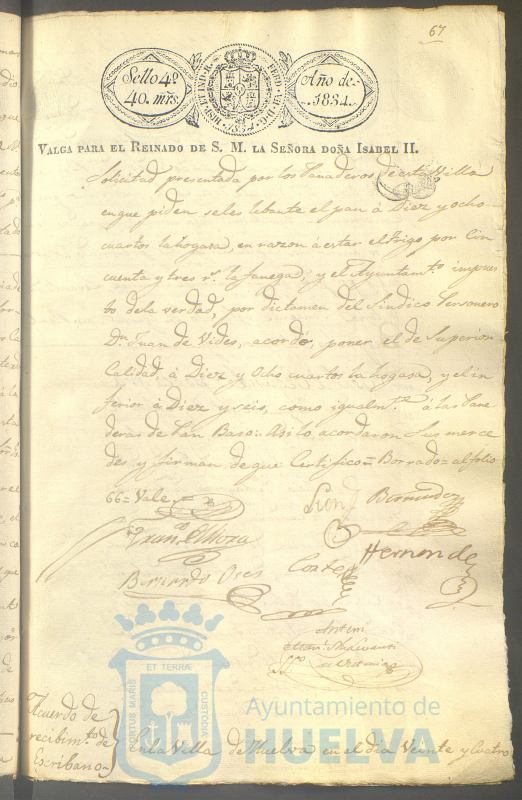 67
Sello 4º
40. mrs.
HISP. ET IND. R.
FERD. VII. D. G.
1834
Año de
1834.
VALGA PARA EL REINADO DE S. M. LA SEÑORA DOÑA ISABEL II.
Solicitud presentada por los Panaderos de esta Villa
en que piden se les lebante el pan á Diez y ocho
cuartos la hogasa, en razon á estar el trigo por Cin
cuenta y tres rs. la fanega; y el Ayuntamto. impues
to de la verdad, por dictamen del Sindico Personero
Dn. Juan de Vides, acordó, poner el de Superior
Calidad á Diez y Ocho cuartos la hogasa, y el in
ferior á Diez y seis, como igualmte. á las Pana
deras de Pan Baso= Asi lo acordaron Sus merce
des y firman de que Certifico= Borrado= al folio
66= Vale=
Bermudez
Hernandez
Bernardo
Antemi
Acuerdo de
recibimto. de
Escribano
En la Villa de Huelva en el dia Veinte y Cuatro
PORTUS MARIS
ET TERRÆ
CUSTODIA
Ayuntamiento de
HUELVA